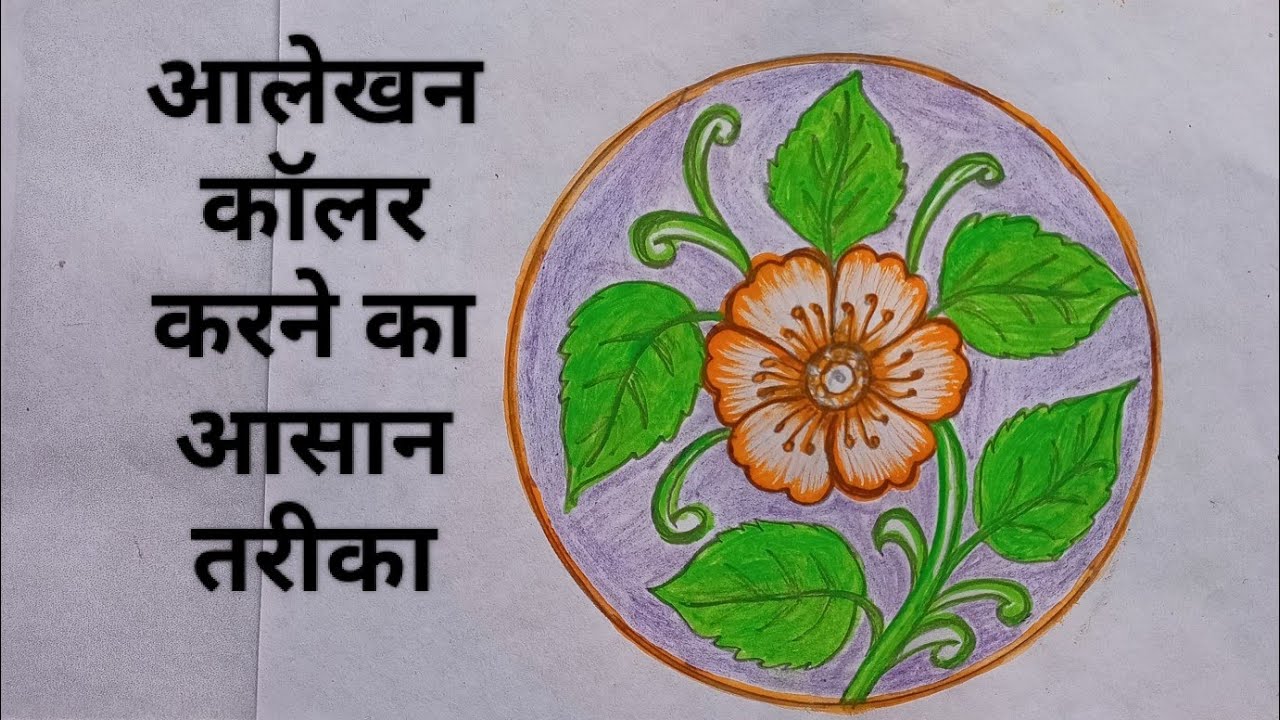 आलेखन
कॉलर
करने का
आसान
तरीका